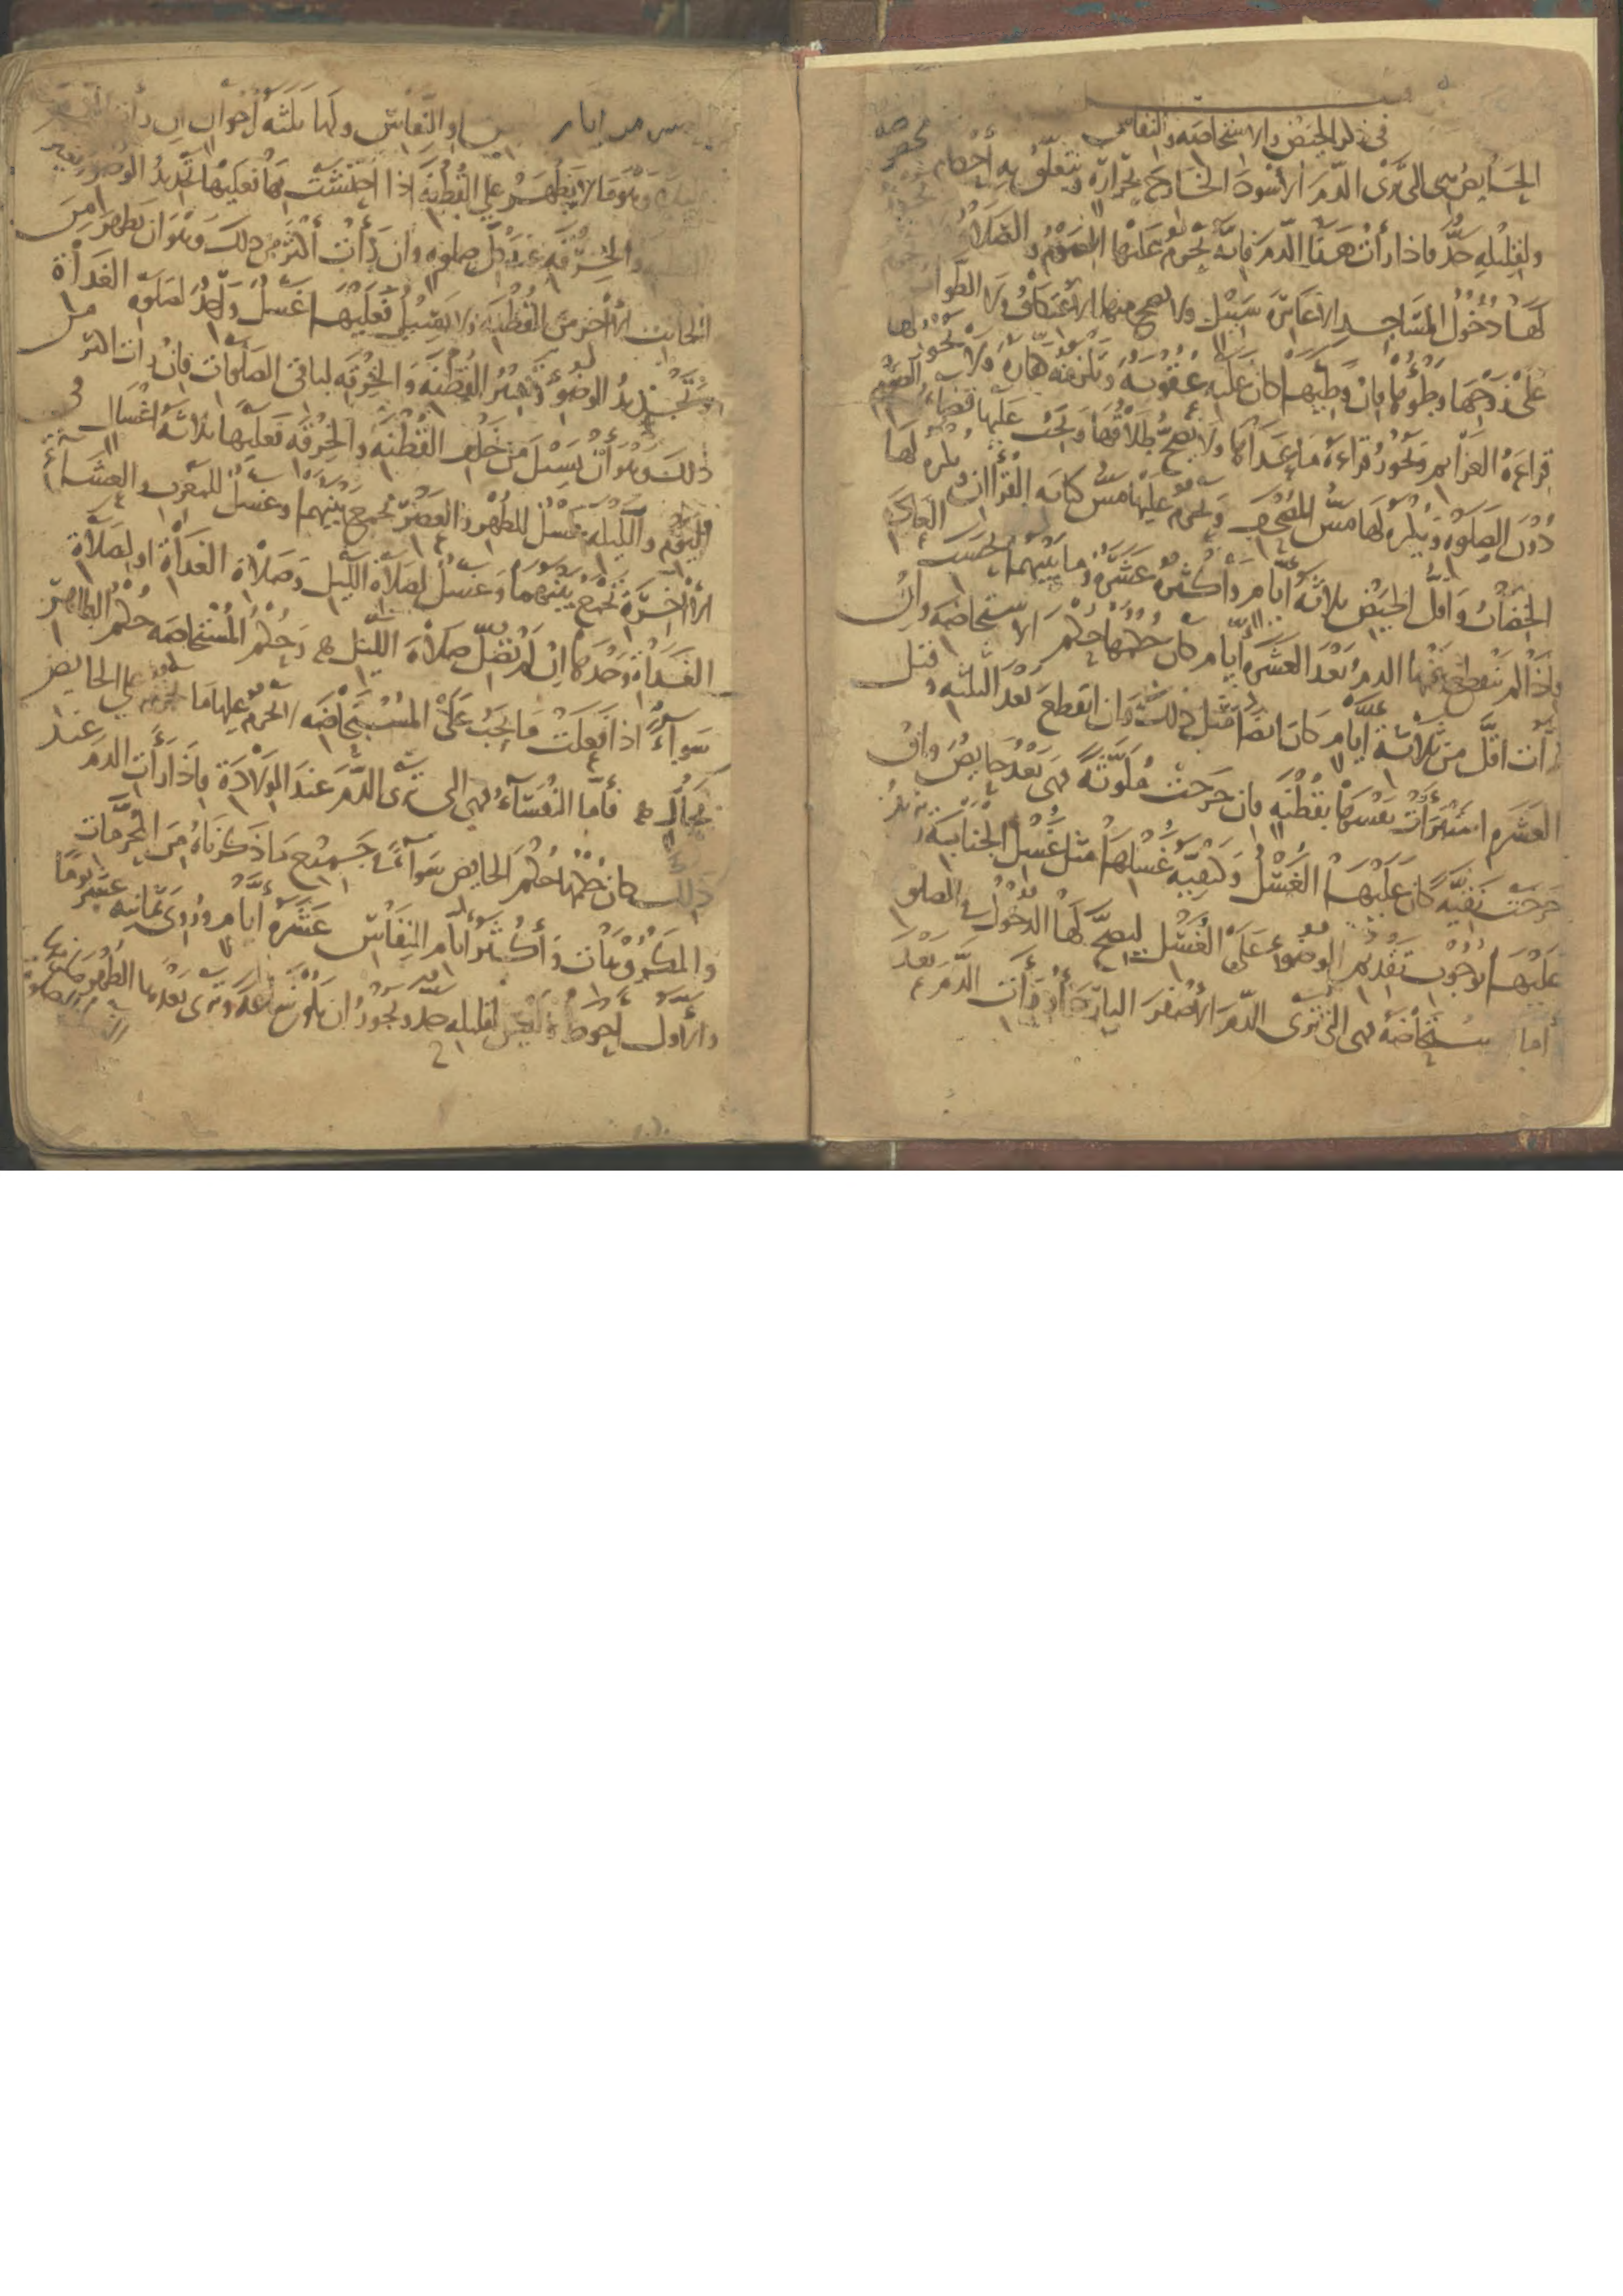 فصل
في ذكر الحيض والاستحاضة والنفاس
الحايض هي التي ترى الدم الأسود الخارج بحرارة ويتعلق به أحكام
ولقليله حد فاذا رأت هذا الدم فانه يحرم عليها الصوم والصلاة
لها دخول المساجد الا عابر سبيل ولا يصح منها الاعتكاف ولا الطواف
على زوجها وطؤها فان وطيها كان عليه عقوبة ويلزمه كفارة ولا يجوز لها
قراءة العزايم ويجوز قراءة ما عداها ولا يصح طلاقها ويجب عليها قضاء الصوم
دون الصلوة ويكره لها مس المصحف ويحرم عليها مس كتابة القرآن ويكره لها
الخضاب وأقل الحيض ثلاثة أيام وأكثره عشرة وما بينهما بحسب العادة
فاذا لم ينقطع عنها الدم بعد العشرة أيام كان حكمها حكم الاستحاضة وان
رأت اقل من ثلاثة ايام كان ايضا مثل ذلك وان انقطع بعد الثلثة وقبل
العشرة استبرأت نفسها بقطنة فان خرجت ملوثة فهي بعد حايض وان
خرجت نقية كان عليها الغسل وكيفية غسلها مثل غسل الجنابة
عليها وجوب تقديم الوضوء على الغسل ليصح لها الدخول في الصلوة
أما المستحاضة فهي التي ترى الدم الأصفر البارد أو رأت الدم بعد
والنفاس ولها ثلثة أحوال ان رأت
وهو ما لا يظهر على القطنة اذا احتشت بها فعليها تجديد الوضوء وتغيير
القطنة والخرقة عند كل صلوة وان رأت أكثر من ذلك وهو ان يظهر من
الجانب الآخر من القطنة ولا يسيل فعليها غسل واحد لصلوة الغداة
وتجديد الوضوء وتغيير القطنة والخرقة لباقي الصلوات فان رأت اكثر من
ذلك وهو أن يسيل من خلف القطنة والخرقة فعليها ثلاثة اغسال في
اليوم والليلة غسل للظهر والعصر تجمع بينهما وغسل للمغرب والعشاء
الآخرة تجمع بينهما وغسل لصلاة الليل وصلاة الغداة او لصلاة
الغداة وحدها ان لم تصل صلاة الليل وحكم المستحاضة حكم الطاهر
سواء اذا فعلت ما يجب على المستحاضة لا يحرم عليها ما يحرم على الحايض
بحال فأما النفساء فهي التي ترى الدم عند الولادة فاذا رأت الدم عند
ذلك كان حكمها حكم الحايض سواء في جميع ما ذكرناه من المحرمات
والمكروهات وأكثر أيام النفاس عشرة أيام وروي ثمانية عشر يوما
والأول أحوط وليس لقليله حد ويجوز ان يكون ساعة وترى بعدها الطهر